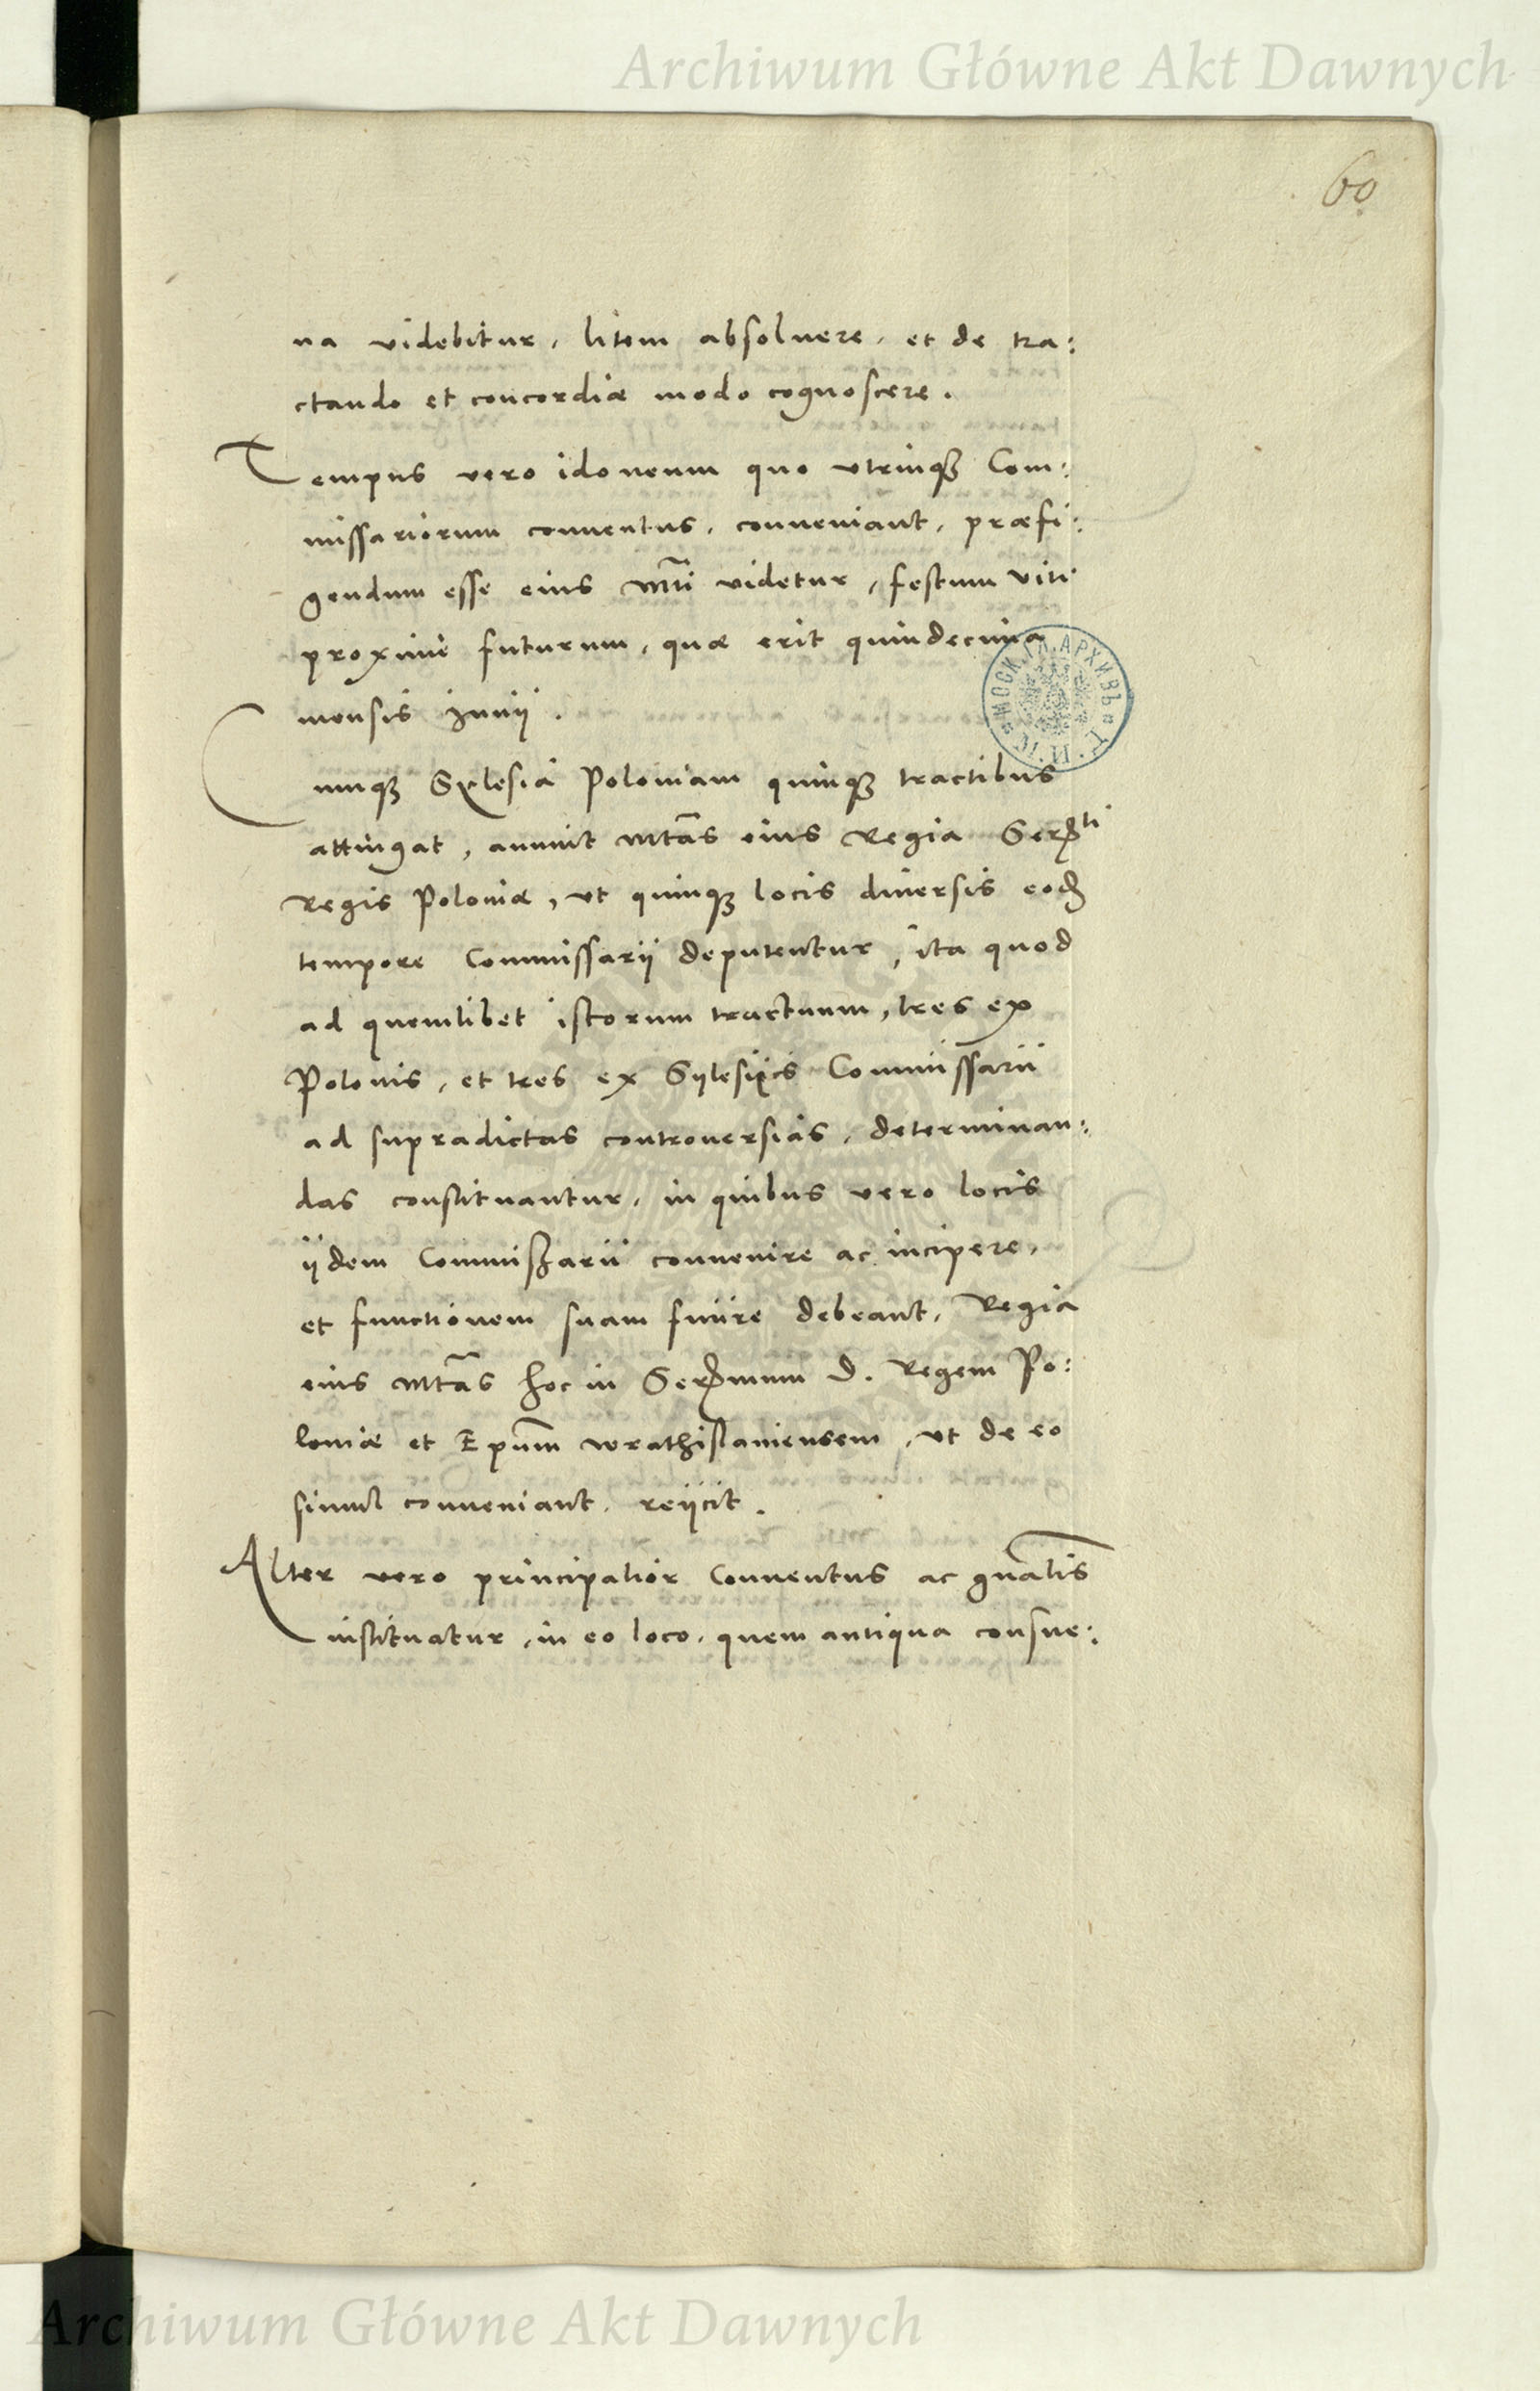 Archiwum Główne Akt Dawnych
60
na videbitur, litem absoluere, et de tra:
ctando et concordiæ modo cognoscere.
Tempus vero idoneum quo vtrinqȝ Com:
missariorum conuentus, conueniant, præfi:
gendum esse eius Mti videtur, festum Viti
proxime futurum, quæ erit quindecima
mensis Junij.
Cumqȝ Sylesia Poloniam quinqȝ tractibus
attingat, annuit Mtas eius Regia Serti
Regis Poloniæ, vt quinqȝ locis diuersis eod
tempore Commissarij deputentur, ita quod
ad quemlibet istorum tractuum, tres ex
Polonis, et tres ex Sylesijs Commissarii
ad supradictas controuersias, determinan:
das constituantur, in quibus vero locis
ijdem Commiszarii conuenire ac incipere,
et functionem suam finire debeant, Regia
eius Mtas hoc in Sermum D. Regem Po:
loniæ et Epum Wrathislauiensem, vt de eo
simul conueniant, reijcit.
Alter vero principalior Conuentus ac gnalis
instituatur, in eo loco, quem antiqua consue:
МОСК. ГЛ. АРХИВЪ
Archiwum Główne Akt Dawnych